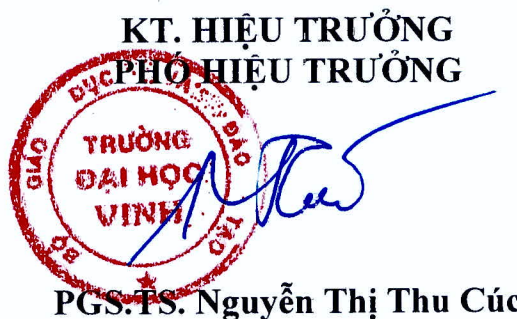 KT. HIỆU TRƯỞNG
PHÓ HIỆU TRƯỞNG
BỘ GIÁO DỤC VÀ ĐÀO TẠO
TRƯỜNG
ĐẠI HỌC
VINH
PGS.TS. Nguyễn Thị Thu Cúc